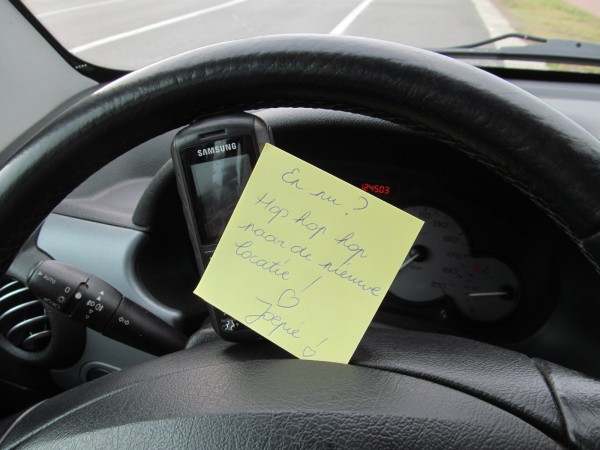 SAMSUNG
124503
En nu?
Hop hop hop
naar de nieuwe
locatie!
♡
Joepie!
♡